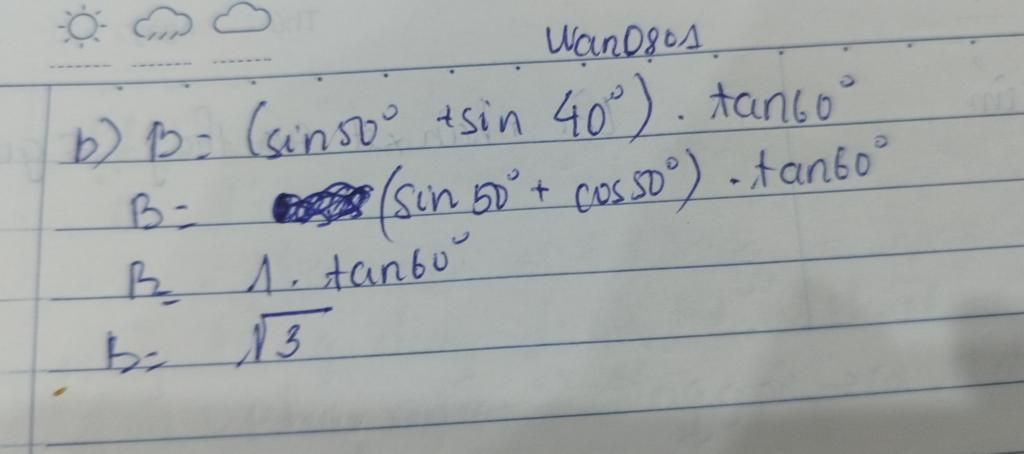 WanD801
b) B = (sin50° + sin 40°) . tan60°
B = (sin 50° + cos50°) . tan60°
B = 1 . tan60°
b = √3